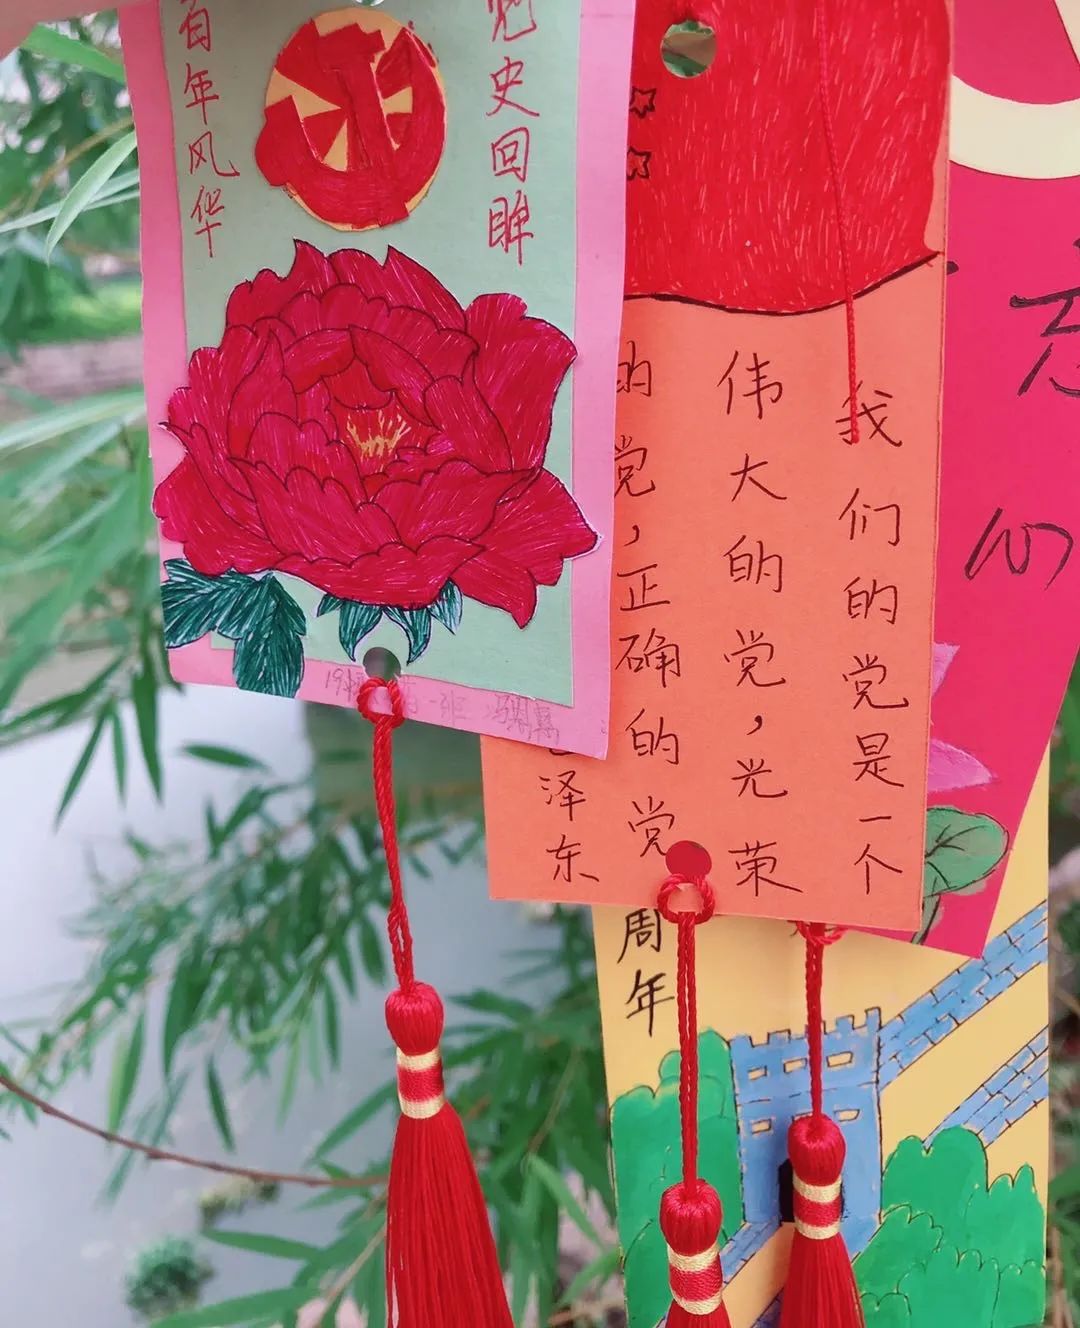 百年风华
党史回眸
我们的党是一个
伟大的党，光荣
的党，正确的党
泽东
周年
心